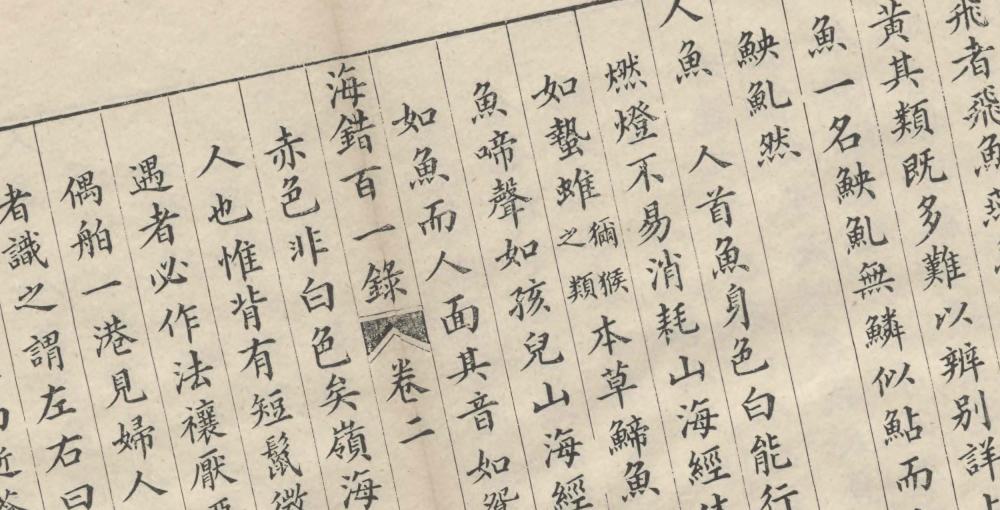 飛者飛魚
黃其類既多難以辨别詳
魚一名鮧魤無鱗似鮎而
魤然
人魚　人首魚身色白能行
燃燈不易消耗山海經
如蟄蜼獼猴之類本草鯑魚
魚啼聲如孩兒山海經
如魚而人面其音如
海錯百一錄　卷二
赤色非白色矣嶺海
人也惟背有短鬣微
遇者必作法禳厭
偶舶一港見婦人
者識之謂左右曰